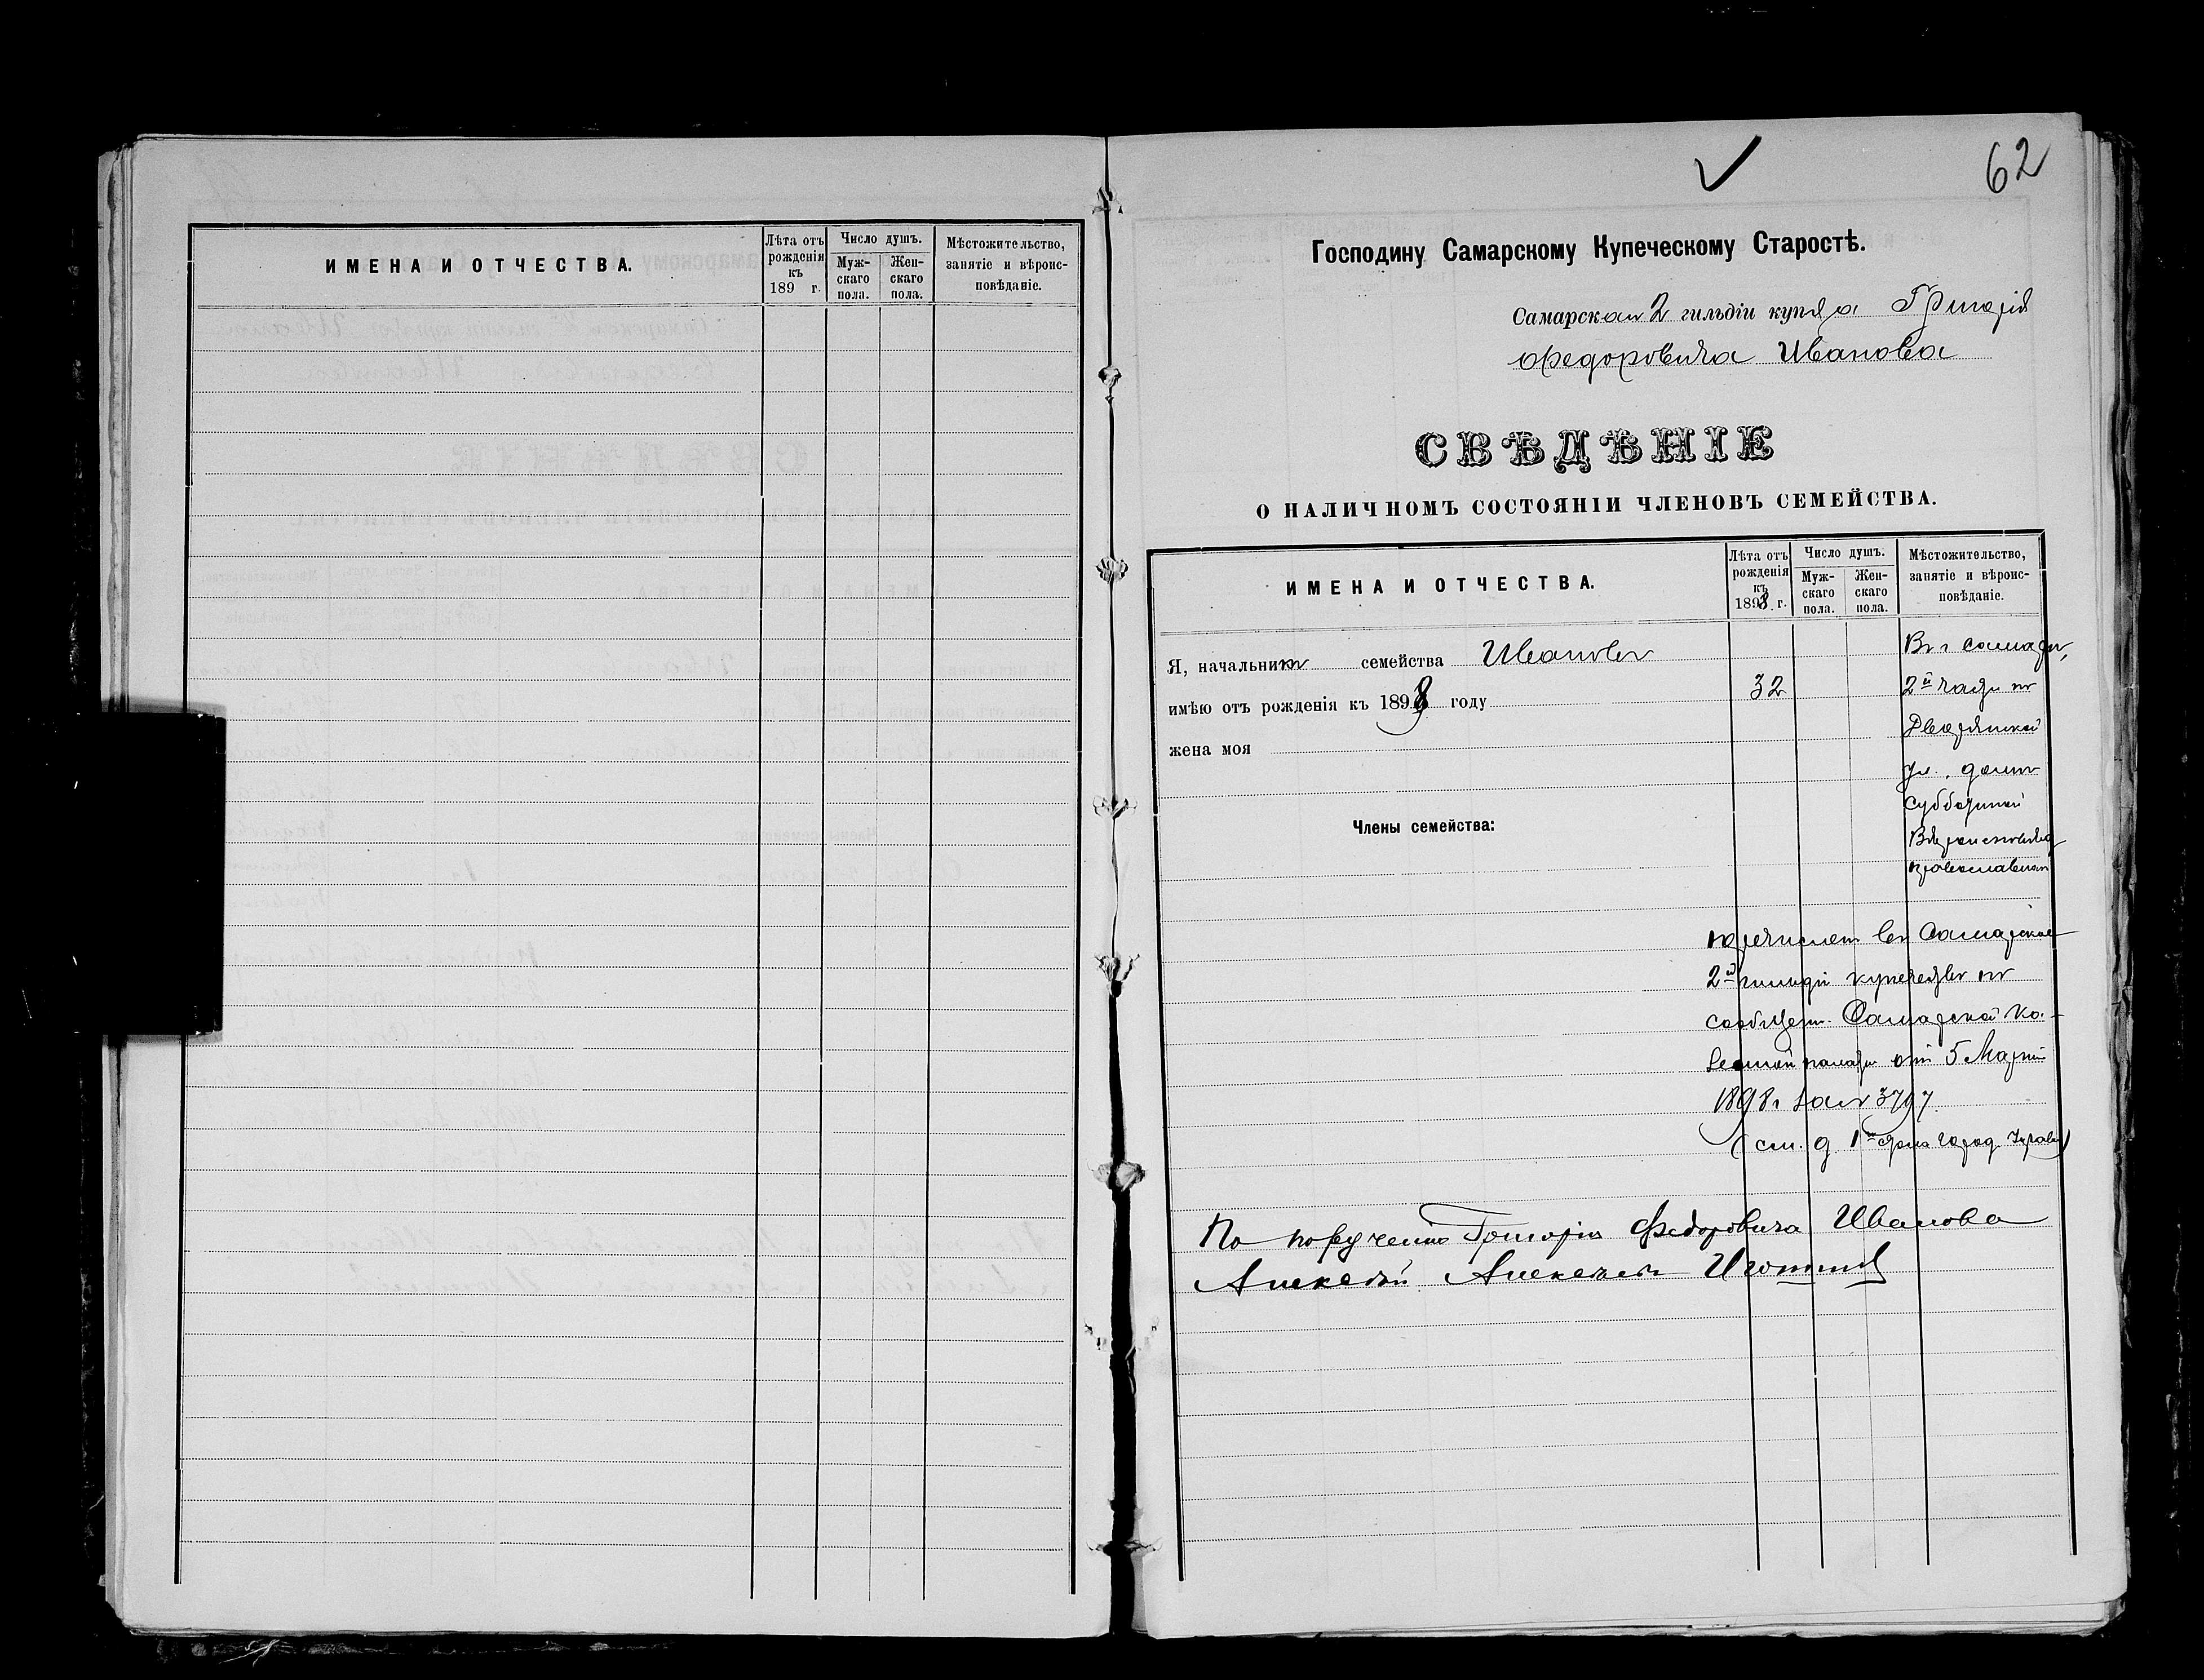 ИМЕНА И ОТЧЕСТВА.
Лѣта отъ рожденія къ 189 г.
Число душъ.
Мужскаго пола.
Женскаго пола.
Мѣстожительство, занятіе и вѣроисповѣданіе.
62
Господину Самарскому Купеческому Старостѣ.
Самарскаго 2 гильдіи купца Григорія
Федоровича Иванова
СВѢДѢНІЕ
О НАЛИЧНОМЪ СОСТОЯНІИ ЧЛЕНОВЪ СЕМЕЙСТВА.
ИМЕНА И ОТЧЕСТВА.
Лѣта отъ
рожденія
къ
1898 г.
Число душъ.
Муж-
скаго
пола.
Жен-
скаго
пола.
Мѣстожительство,
занятіе и вѣроис-
повѣданіе.
Я, начальникъ семейства Ивановъ
имѣю отъ рожденія къ 1898 году 32
жена моя
Въ г. Самарѣ,
2й части по
Дворянской
ул., домъ
Субботиной
православнаго
Члены семейства:
перечисленъ въ Самарское
2й гильдіи купечество по
сообщен. Самарской Ка-
зенной палаты отъ 5 Марта
1898 г. за №
(см. д. город.
По порученію Григорія Федоровича Иванова
Алексѣй Алексѣевъ